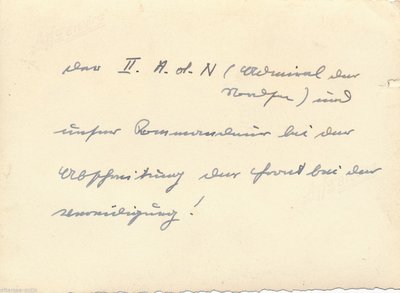 der II. A. d. N (Admiral der
Nordsee) und
unser Kommandeur bei der
Abschreitung der Front bei der
Vereidigung!